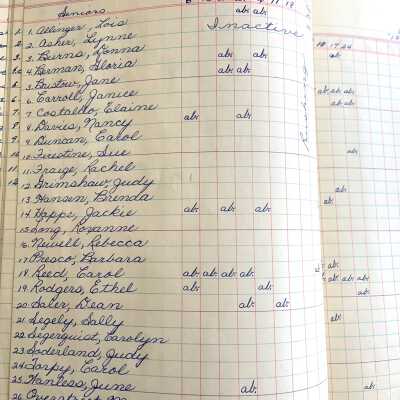 Seniors ab. ab.
1. 1. Allinger, Lois Inactive
2. 2. Asher, Lynne
3. 3. Burns, Donna ab. ab. ab.
4. 4. Berman, Gloria ab. ab.
5. 5. Bristow, Jane
6. 6. Carroll, Janice ab. ab. ab.
7. 7. Costello, Elaine ab. ab. ab. ab.
8. 8. Davies, Nancy
9. 9. Duncan, Carol
10. 10. Firestine, Sue ab.
11. 11. Fraige, Rachel
12. 12. Grimshaw, Judy ab.
13. Hansen, Brenda ab.
14. Happe, Jackie ab. ab. ab.
15. Long, Roxanne
16. Newell, Rebecca
17. Presco, Barbara ab.
18. Reed, Carol ab. ab. ab. ab. ab. ab. ab.
19. Rodgers, Ethel ab. ab. ab.
20. Saler, Dean ab. ab.
21. Segely, Sally ab.
22. Segerquist, Carolyn
23. Soderland, Judy
24. Torpy, Carol
25. Wanless, June ab.
26.